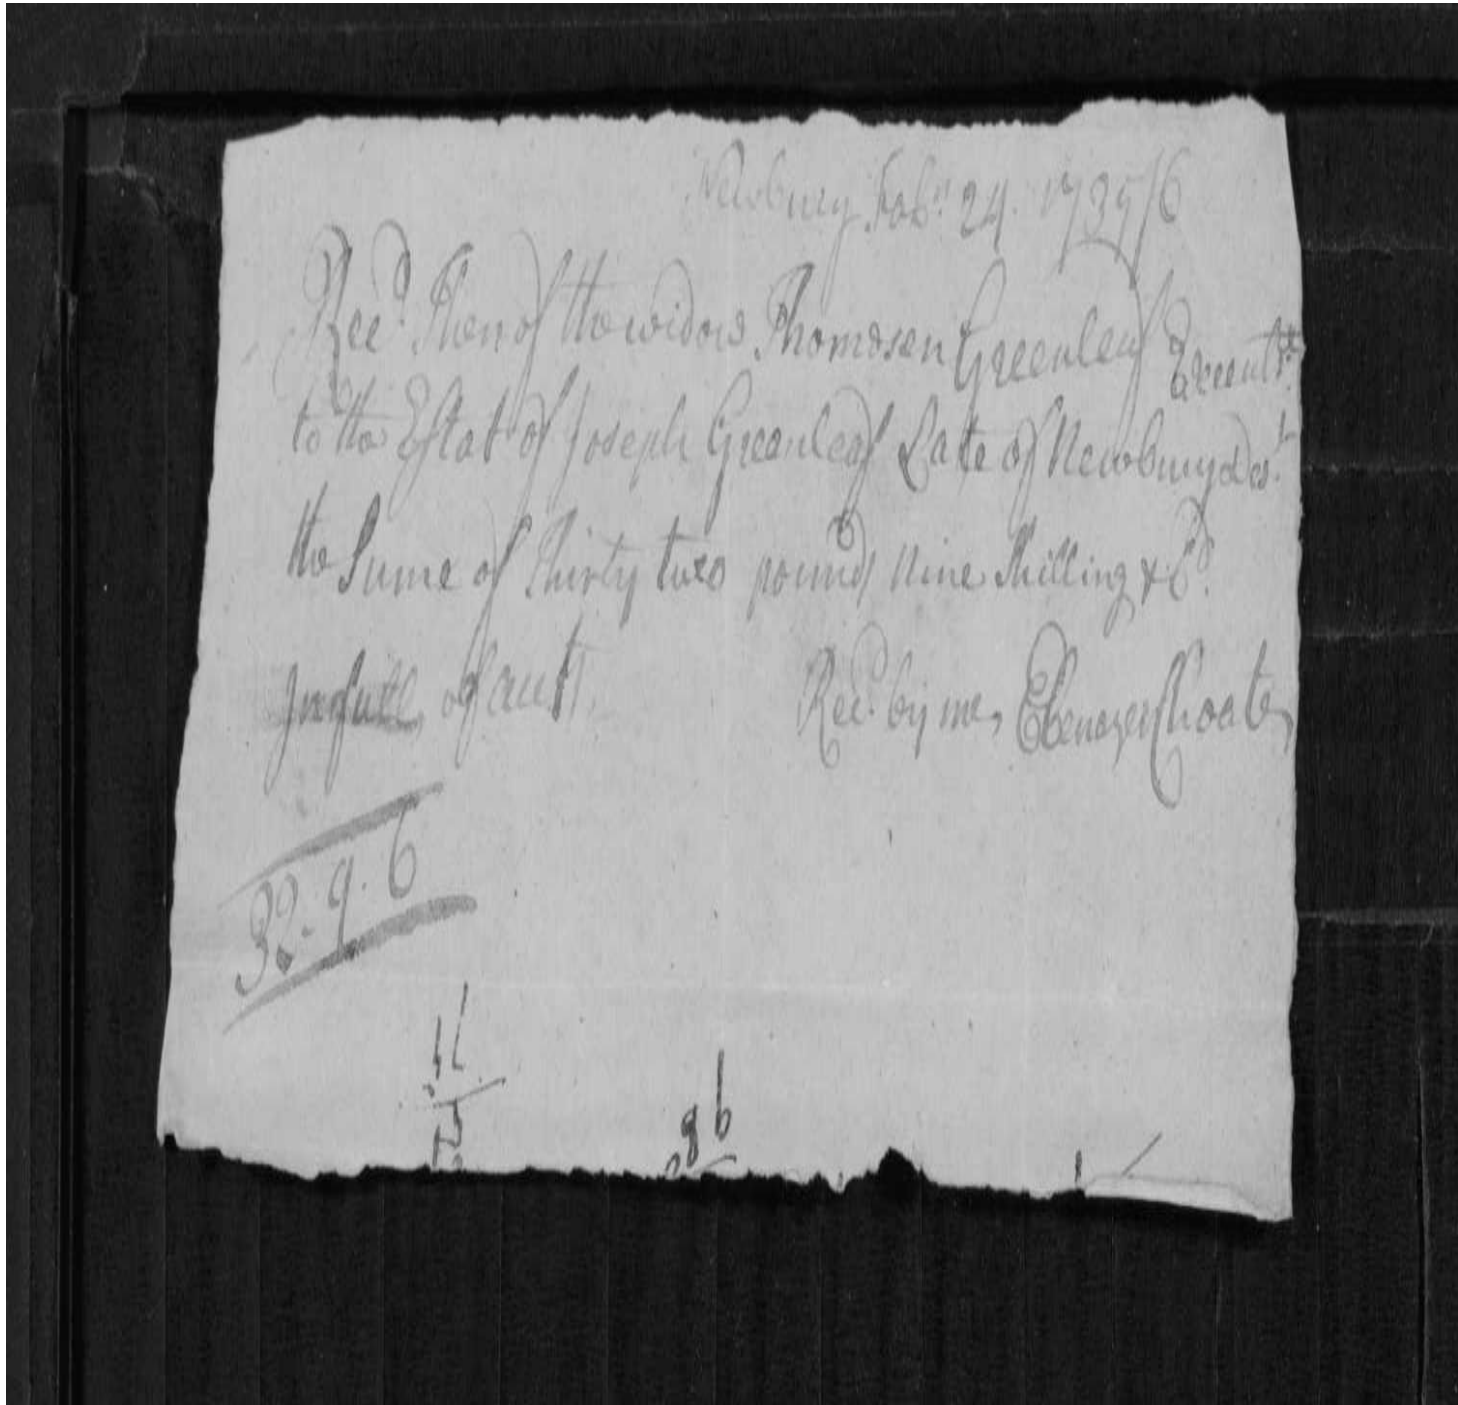 Newbury Febry 24. 1735/6
Recd. Then of the widow Thomasen Greenleaf Executrx
to the Estat of Joseph Greenleaf Late of Newbury Decst
the Sume of Thirty two pounds Nine Shilling & 6d.
In full of Acctt.
Recd. by me, Ebenezer Choate
32-9-6
11
5
9 6